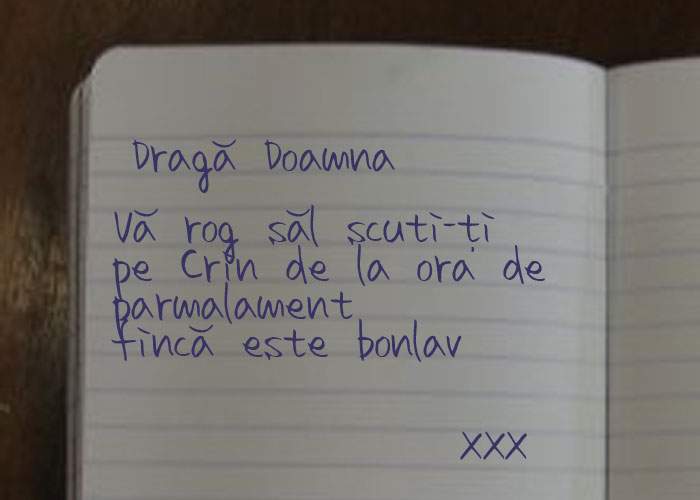 Dragă Doamna
Vă rog săl scuti-ți
pe Crin de la ora de
parmalament
fincă este bonlav
XXX